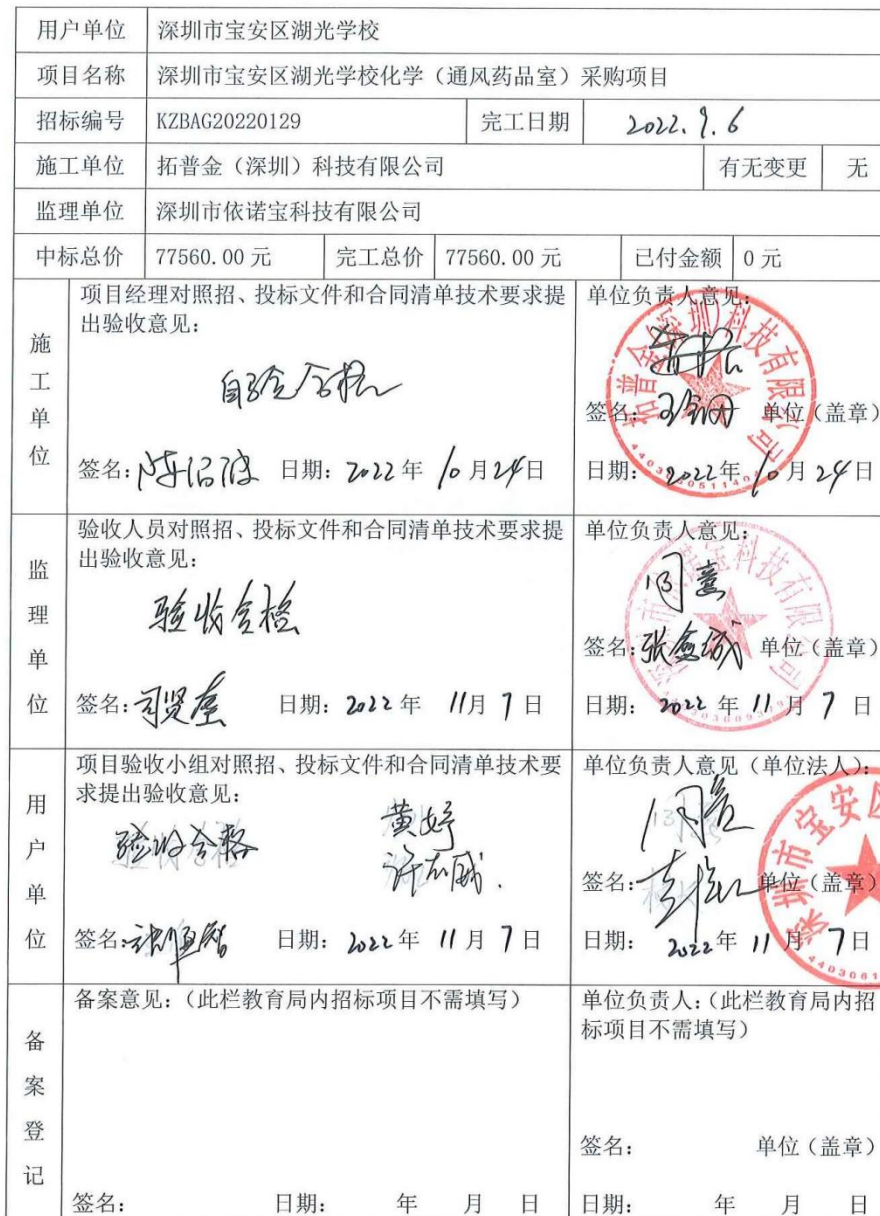 用户单位 深圳市宝安区湖光学校
项目名称 深圳市宝安区湖光学校化学（通风药品室）采购项目
招标编号 KZBAG20220129 完工日期 2022.9.6
施工单位 拓普金（深圳）科技有限公司 有无变更 无
监理单位 深圳市依诺宝科技有限公司
中标总价 77560.00 元 完工总价 77560.00 元 已付金额 0 元
施工单位
项目经理对照招、投标文件和合同清单技术要求提
出验收意见：
自验合格
签名： 日期：2022 年 10 月 24 日
单位负责人意见：
拓普金(深圳)科技有限公司
签名： 单位（盖章）
日期：2022 年 10 月 24 日
监理单位
验收人员对照招、投标文件和合同清单技术要求提
出验收意见：
验收合格
签名：司贤奎 日期：2022 年 11 月 7 日
单位负责人意见：
同意
签名：张鑫斌 单位（盖章）
日期：2022 年 11 月 7 日
用户单位
项目验收小组对照招、投标文件和合同清单技术要
求提出验收意见：
验收合格 黄婷
签名： 日期：2022 年 11 月 7 日
单位负责人意见（单位法人）：
同意
深圳市宝安区
签名： 单位（盖章）
日期：2022 年 11 月 7 日
备案登记
备案意见：（此栏教育局内招标项目不需填写）
签名： 日期： 年 月 日
单位负责人：（此栏教育局内招
标项目不需填写）
签名： 单位（盖章）
日期： 年 月 日